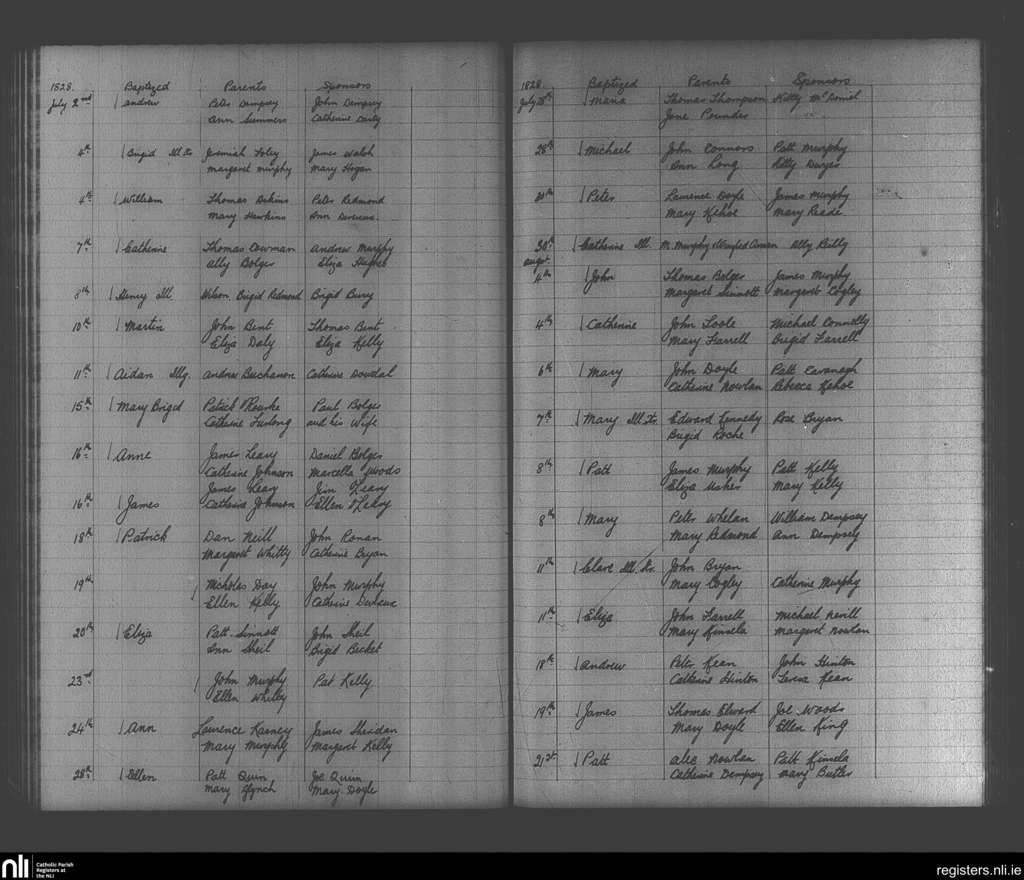 1828. Baptized Parents Sponsors
July 2nd Andrew Peter Dempsey John Dempsey
Ann Summers Catherine Carty
4th Brigid Ill. Jeremiah Foley James Walsh
Margaret Murphy Mary Hogan
4th William Thomas Peter Redmond
Mary Hawkins Ann Devereux
7th Catherine Thomas Cowman Andrew Murphy
Ally Bolger Eliza Hughes
8th Henry Ill Wilson Brigid Redmond Brigid Bury
10th Martin John Bent Thomas Bent
Eliza Daly Eliza Kelly
11th Aidan Illg. Andrew Buchanon Catherine Dowdal
15th Mary Brigid Patrick O'Rourke Paul Bolger
Catherine Furlong and his Wife
16th Anne James Leary Daniel Bolger
Catherine Johnson Marcella Woods
James Leary Jim O'Leary
16th James Catherine Johnson Ellen O'Leary
18th Patrick Dan Neill John Ronan
Margaret Whitty Catherine Bryan
19th Nicholas Day John Murphy
Ellen Kelly Catherine
20th Eliza Patt Sinnott John Sheil
Ann Sheil Brigid Becket
23rd John Murphy Pat Kelly
Ellen Whitty
24th Ann Laurence Karney James Sheridan
Mary Murphy Margaret Kelly
28th Ellen Patt Quin Joe Quinn
Mary Lynch Mary Doyle
1828 Baptized Parents Sponsors
July 28th Maria Thomas Thompson Kitty McDaniel
Jane Pounder
28th Michael John Connors Patt Murphy
Ann Long Kitty Dwyer
30th Peter Laurence Doyle James Murphy
Mary Kehoe Mary Reade
30th Catherine Ill. M. Murphy & Winifred Ally Reilly
August
4th John Thomas Bolger James Murphy
Margaret Sinnott Margaret Cogley
4th Catherine John Toole Michael Connolly
Mary Farrell Brigid Farrell
6th Mary John Doyle Patt Cavanagh
Catherine Nowlan Rebecca Kehoe
7th Mary Ill. Edward Kennedy Rose Bryan
Brigid Roche
8th Patt James Murphy Patt Kelly
Eliza Usher Mary Kelly
8th Mary Peter Whelan William Dempsey
Mary Redmond Ann Dempsey
11th Clare Ill. John Bryan
Mary Cogley Catherine Murphy
11th Eliza John Farrell Michael Nevill
Mary Kinsela Margaret Nowlan
18th Andrew Peter Kean John Hinton
Catherine Hinton Teresa Kean
19th James Thomas Elward Joe Woods
Mary Doyle Ellen King
21st Patt Alec Nowlan Patt Kinsela
Catherine Dempsey Mary Butler
nli Catholic Parish
Registers at
the NLI
registers.nli.ie